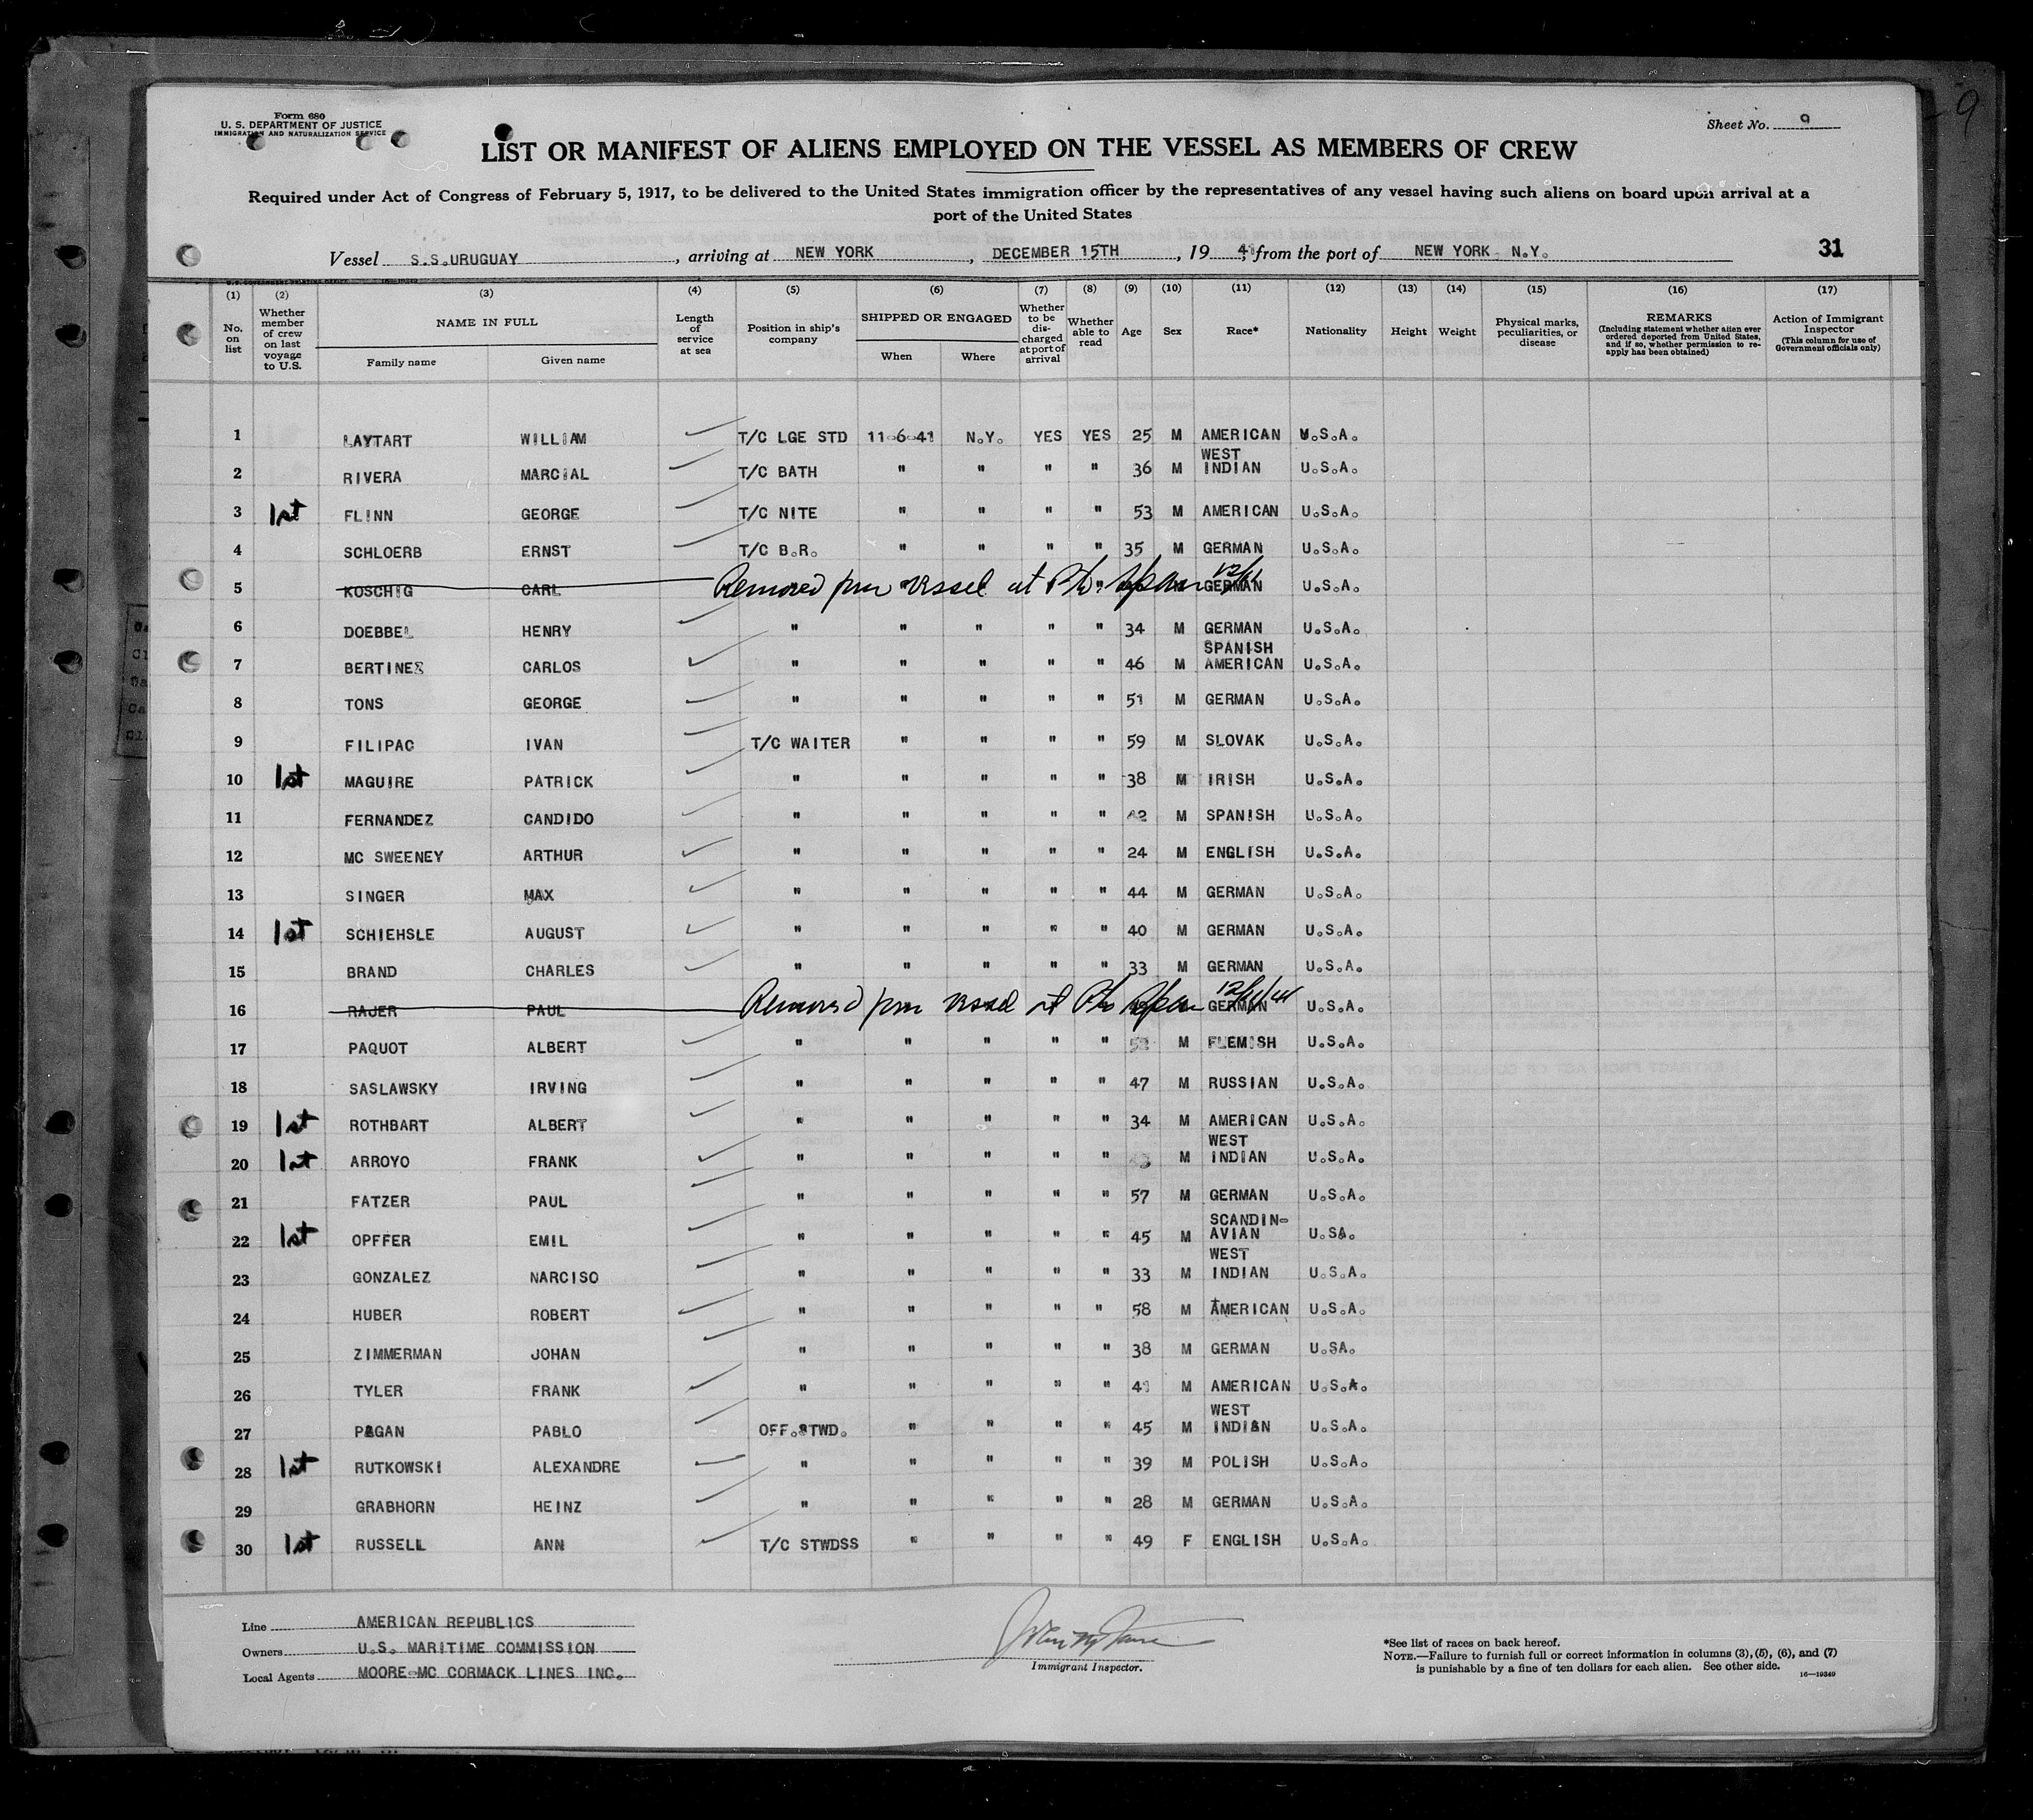 9
Form 680
U. S. DEPARTMENT OF JUSTICE
IMMIGRATION AND NATURALIZATION SERVICE
Sheet No. 9
LIST OR MANIFEST OF ALIENS EMPLOYED ON THE VESSEL AS MEMBERS OF CREW
Required under Act of Congress of February 5, 1917, to be delivered to the United States immigration officer by the representatives of any vessel having such aliens on board upon arrival at a
port of the United States
Vessel S.S.URUGUAY, arriving at NEW YORK, DECEMBER 15TH, 19 41, from the port of NEW YORK N.Y. 31
(1) (2) (3) (4) (5) (6) (7) (8) (9) (10) (11) (12) (13) (14) (15) (16) (17)
No. on list
Whether member of crew on last voyage to U.S.
NAME IN FULL
Family name
Given name
Length of service at sea
Position in ship's company
SHIPPED OR ENGAGED
When
Where
Whether to be discharged at port of arrival
Whether able to read
Age
Sex
Race*
Nationality
Height
Weight
Physical marks, peculiarities, or disease
REMARKS
(Including statement whether alien ever ordered deported from United States, and if so, whether permission to reapply has been obtained)
Action of Immigrant Inspector
(This column for use of Government officials only)
1 LAYTART WILLIAM T/C LGE STD 11-6-41 N.Y. YES YES 25 M AMERICAN U.S.A.
2 RIVERA MARCIAL T/C BATH " " " " 36 M WEST INDIAN U.S.A.
3 1st FLINN GEORGE T/C NITE " " " " 53 M AMERICAN U.S.A.
4 SCHLOERB ERNST T/C B.R. " " " " 35 M GERMAN U.S.A.
5 KOSCHIG CARL Removed from vessel at GERMAN U.S.A.
6 DOEBBEL HENRY " " " " " 34 M GERMAN U.S.A.
7 BERTINEZ CARLOS " " " " " 46 M SPANISH AMERICAN U.S.A.
8 TONS GEORGE " " " " " 51 M GERMAN U.S.A.
9 FILIPAC IVAN T/C WAITER " " " " 59 M SLOVAK U.S.A.
10 1st MAGUIRE PATRICK " " " " " 38 M IRISH U.S.A.
11 FERNANDEZ CANDIDO " " " " " 42 M SPANISH U.S.A.
12 MC SWEENEY ARTHUR " " " " " 24 M ENGLISH U.S.A.
13 SINGER MAX " " " " " 44 M GERMAN U.S.A.
14 1st SCHIEHSLE AUGUST " " " " " 40 M GERMAN U.S.A.
15 BRAND CHARLES " " " " " 33 M GERMAN U.S.A.
16 RAJER PAUL Removed from vessel at GERMAN U.S.A.
17 PAQUOT ALBERT " " " " " M FLEMISH U.S.A.
18 SASLAWSKY IRVING " " " " " 47 M RUSSIAN U.S.A.
19 1st ROTHBART ALBERT " " " " " 34 M AMERICAN U.S.A.
20 1st ARROYO FRANK " " " " " M WEST INDIAN U.S.A.
21 FATZER PAUL " " " " " 57 M GERMAN U.S.A.
22 1st OPFFER EMIL " " " " " 45 M SCANDIN-AVIAN U.SA.
23 GONZALEZ NARCISO " " " " " 33 M WEST INDIAN U.S.A.
24 HUBER ROBERT " " " " " 58 M AMERICAN U.S.A.
25 ZIMMERMAN JOHAN " " " " " 38 M GERMAN U.SA.
26 TYLER FRANK " " " " " 41 M AMERICAN U.S.A.
27 PAGAN PABLO OFF.STWD. " " " " 45 M WEST INDIAN U.S.A.
28 1st RUTKOWSKI ALEXANDRE " " " " " 39 M POLISH U.S.A.
29 GRABHORN HEINZ " " " " " 28 M GERMAN U.S.A.
30 1st RUSSELL ANN T/C STWDSS " " " " 49 F ENGLISH U.S.A.
Line AMERICAN REPUBLICS
Owners U.S. MARITIME COMMISSION
Local Agents MOORE-MC CORMACK LINES INC.
Immigrant Inspector.
*See list of races on back hereof.
NOTE.—Failure to furnish full or correct information in columns (3), (5), (6), and (7)
is punishable by a fine of ten dollars for each alien. See other side.
16—19349